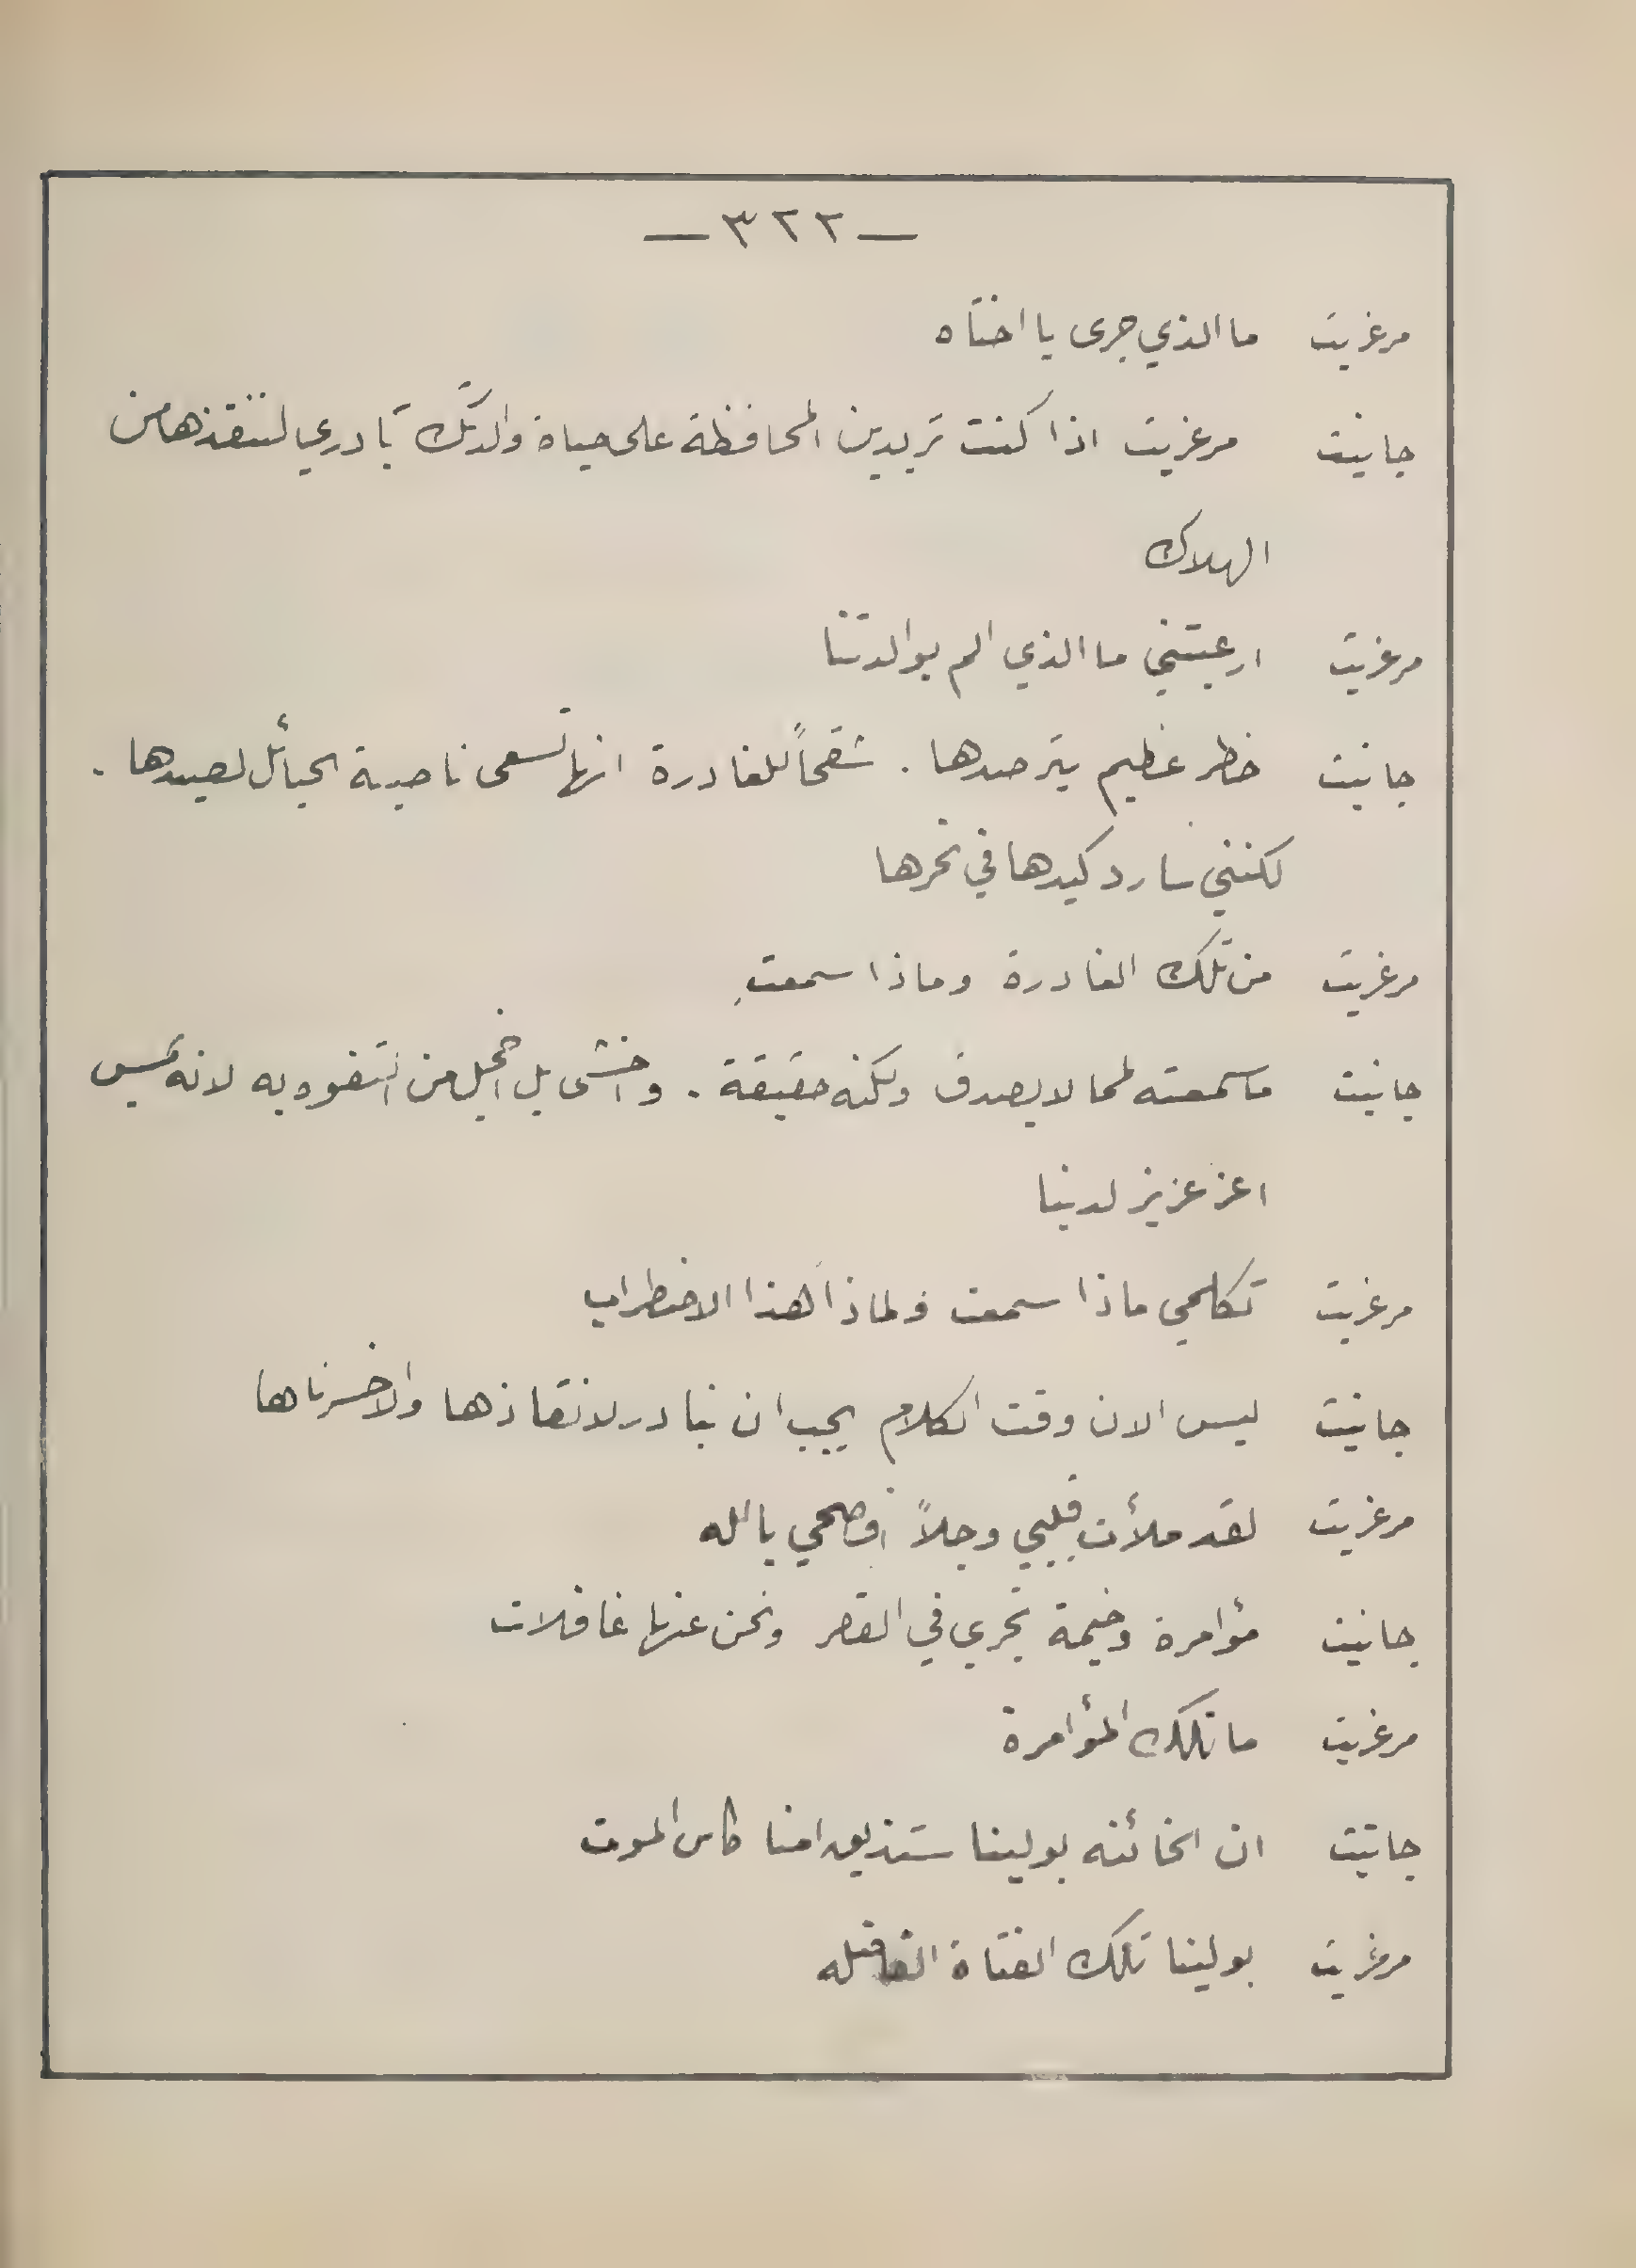 —٣٢٢—
مرغريت ما الذي جرى يا اختاه
جانيت مرغريت اذا كنت تريدين المحافظة على حياة والدتك بادري لننقذها من
الهلاك
مرغريت ارعبتني ما الذي الم بوالدتنا
جانيت خطر عظيم يترصدها . شقحاً للغادرة انها تسعى ناصبة الحبائل لصيدها .
لكنني سارد كيدها في نحرها
مرغريت من تلك الغادرة وماذا سمعتِ
جانيت ما سمعته لمما لا يصدق ولكنه حقيقة . واخشى بل اخجل من التفوه به لانه يمس
اعز عزيز لدينا
مرغريت تكلمي ماذا سمعت ولماذا هذا الاضطراب
جانيت ليس الان وقت الكلام يجب ان نبادر لانقاذها والا خسرناها
مرغريت لقد ملأتِ قلبي وجلاً افصحي بالله
جانيت مؤامرة وخيمة تجري في القصر ونحن عنها غافلات
مرغريت ما تلك المؤامرة
جانيت ان الخائنه بولينا ستذيق امنا كاس الموت
مرغريت بولينا تلك الفتاة القاتله